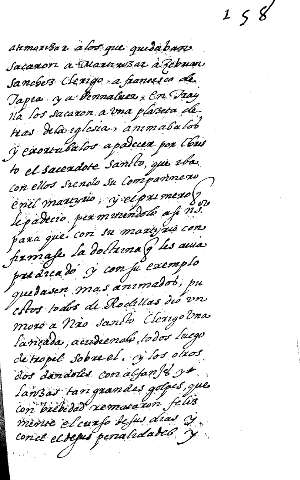 158
atemorizar à los que quedaban
sacaron a Martirizar à Zebrian
Sanchez Clerigo, a francisco de
Tapia y a Bennalver, en Tray
lla los sacaron a una plazeta de
tras de la iglesia, animabalos
y exortabalos a padecer por Chris
to el sacerdote santo, que iba
con ellos siendo su compannero
en el martyrio, y el primero
le padecio, permitiendolo asi ns.
para que con su martyrio con
firmase la doctrina q les avia
predicado y con su exemplo
quedasen mas animados, pu
estos todos de Rodillas dio un
moro a Nro santo Clerigo una
lanzada, acudiendo, todos luego
de tropel sobre el, y los otros
dos dandoles con alfanjes y
lanzas tan grandes golpes, que
con brebedad remataron feliz
mente el curso de sus dias y
con el de sus penalidades y